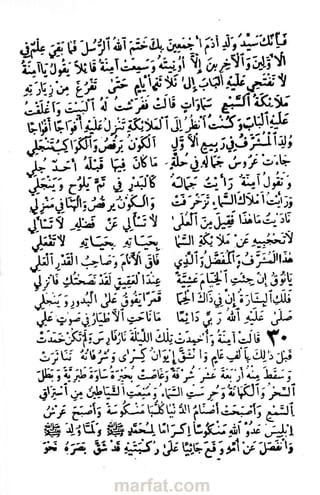 فَإِنَّكَ سَيِّدُ وَلَدِ آدَمَ أَجْمَعِينَ بِكَ خَتَمَ اللهُ الرُّسُلَ فَمَا بَقِيَ عِلْمٌ فِي
الْأَوَّلِينَ وَالْآخِرِينَ إِلَّا أُوتِيتَهُ وَسَمِعَتْ آمِنَةُ قَائِلًا يَقُولُ يَا آمِنَةُ
لَا تَفْتَحِي عَلَيْهِ الْبَابَ إِلَى ثَلَاثَةِ أَيَّامٍ حَتَّى تَفْرُغَ مِنْ زِيَارَتِهِ
مَلَائِكَةُ السَّبْعِ سَمَاوَاتٍ قَالَتْ فَفَرَشْتُ لَهُ الْبَيْتَ وَأَغْلَقْتُ
عَلَيْهِ الْبَابَ وَكُنْتُ أَنْظُرُ إِلَى الْمَلَائِكَةِ تَنْزِلُ عَلَيْهِ أَفْوَاجًا أَفْوَاجًا
وُلِدَ الْمُشَرَّفُ فِي رَبِيعِ الْأَوَّلِ الْكَوْنُ يَرْقُصُ وَالْكَوَاكِبُ تَنْجَلِي
جَاءَتْ عَرُوسُ جَمَالِهِ فِي حُلَّةٍ مَا كَانَ فِيهَا قَبْلَهُ أَحَدٌ جُلِي
وَتَقُولُ آمِنَةُ رَأَيْتُ جَمَالَهُ كَالْبَدْرِ فِي تَمٍّ يَلُوحُ وَيَنْجَلِي
وَرَأَيْتُ أَمْلَاكَ السَّمَاءِ تَزَخْرَفَتْ وَالْكَوْنُ يَرْقُصُ وَالْهَنَا فِي مَنْزِلِي
نَادَيْتُ مَا هَذَا فَقِيلَ مِنَ الْعُلَى لَا تَسْأَلِي عَنْ فَضْلِهِ لَا تَسْأَلِي
لَا تَحْجُبِيهِ عَنْ مَلَائِكَةِ السَّمَا بِحَيَاتِهِ بِحَيَاتِهِ لَا تَفْعَلِي
هَذَا الْمُشَرَّفُ وَالْمُفَضَّلُ وَالَّذِي فَاقَ الْأَنَامَ وَصَاحِبُ الْقَدْرِ الْعَلِي
يَا نُوقُ إِنْ جِئْتِ الْخِيَامَ عَشِيَّةً عِنْدَ الْعَقِيقِ لَقَدْ نَصَحْتُكِ فَانْزِلِي
فَلَكِ الْبِشَارَةُ إِنَّ فِي ذَاكَ الْحِمَا قَمَرًا يَفُوقُ عَلَى الْبُدُورِ وَيَنْجَلِي
صَلَّى عَلَيْهِ اللهُ رَبِّي دَائِمًا مَا نَاحَتِ الْأَطْيَارُ فِي صَوْتٍ عَلِي
٣٠ قَالَتْ آمِنَةُ وَأُخْمِدَتْ تِلْكَ اللَّيْلَةَ نَارُ فَارِسَ وَلَمْ تَكُنْ خَمَدَتْ
قَبْلَ ذَلِكَ بِأَلْفِ عَامٍ وَانْشَقَّ إِيوَانُ كِسْرَى وَشُرُفَاتُهُ تَنَاثَرَتْ
وَسَقَطَ مِنْهُ أَرْبَعَةَ عَشَرَ شُرْفَةً وَغَاصَتْ بُحَيْرَةُ سَاوَةَ طَبَرِيَّةَ وَبَطَلَ
السِّحْرُ وَالْكَهَانَةُ وَحُرِسَتِ السَّمَاءُ وَمُنِعَتِ الشَّيَاطِينُ مِنِ اسْتِرَاقِ
السَّمْعِ وَأَصْبَحَتْ أَصْنَامُ الدُّنْيَا كُلُّهَا مَنْكُوسَةً وَأَصْبَحَ عَرْشُ
إِبْلِيسَ عَدُوِّ اللهِ مَنْكُوسًا إِكْرَامًا لِمُحَمَّدٍ ﷺ وَلَمَّا وُلِدَ ﷺ
وَانْفَصَلَ عَنْ أُمِّهِ وَقَعَ جَاثِيًا عَلَى رُكْبَتَيْهِ قَدْ شَقَّ بَصَرُهُ نَحْوَ
marfat.com